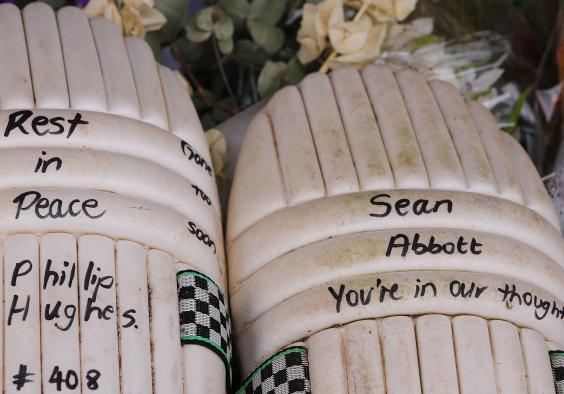 Rest
in
Peace
Gone
too
soon
Phillip
Hughes.
# 408
Sean
Abbott
You're in our thought